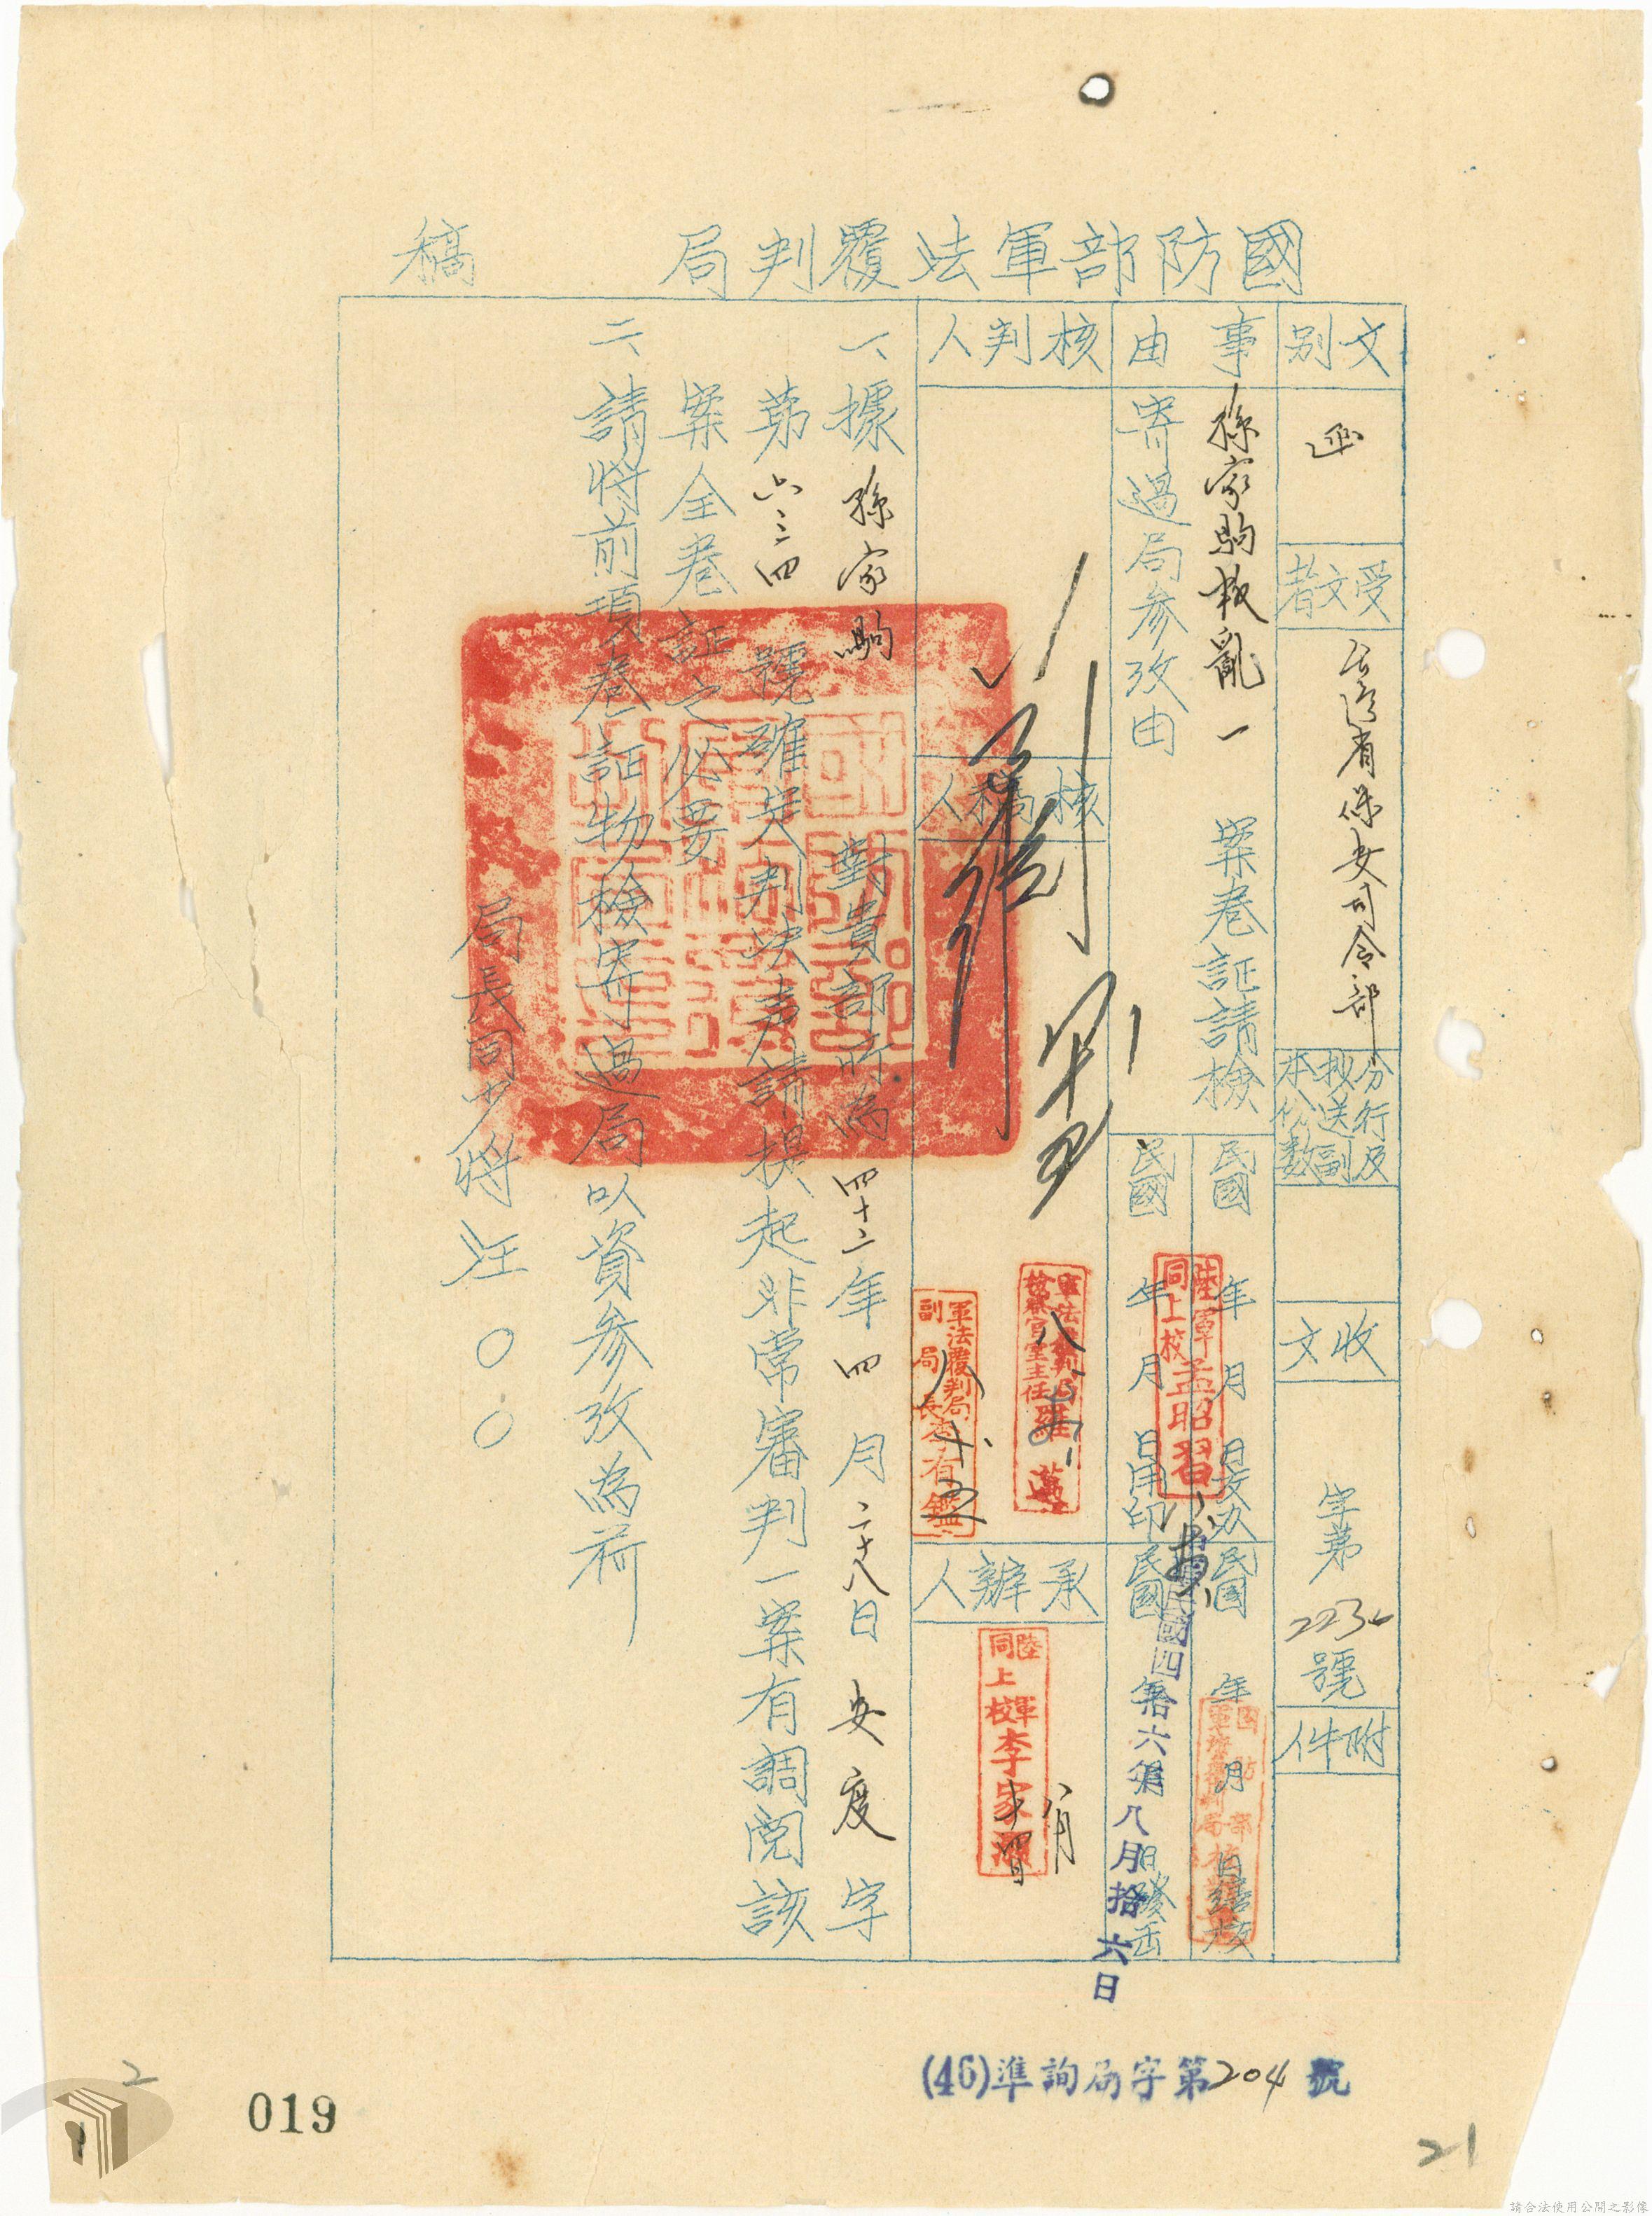 國防部軍法覆判局 稿
文別
函
受文者
台灣省保安司令部
分行及
抄送副
本份數
收文
字第2234號
附件
事由
孫家駒叛亂一 案卷証請檢
寄過局參攷由
民國 年 月 日
民國 年 月 日用印
民國 年 月 日繕校
民國 年 月 日發出
國四拾六年八月拾六日
陸軍同上校孟昭習
核判人
核稿人
軍法覆判局檢察官室主任羅 萬
軍法覆判局副局長李有鑑
八、十五
承辦人
陸軍同上校李家灝
八月
一、據孫家駒 對貴部所為四十二年四月二十八日安度字
第六三四 號確定判決声請提起非常審判一案有調閱該
案全卷証之必要
二、請將前項卷証物檢寄過局以資參攷為荷
局長同少將汪○○
(46)準詢局字第204號
019
2
21
請合法使用公開之影像